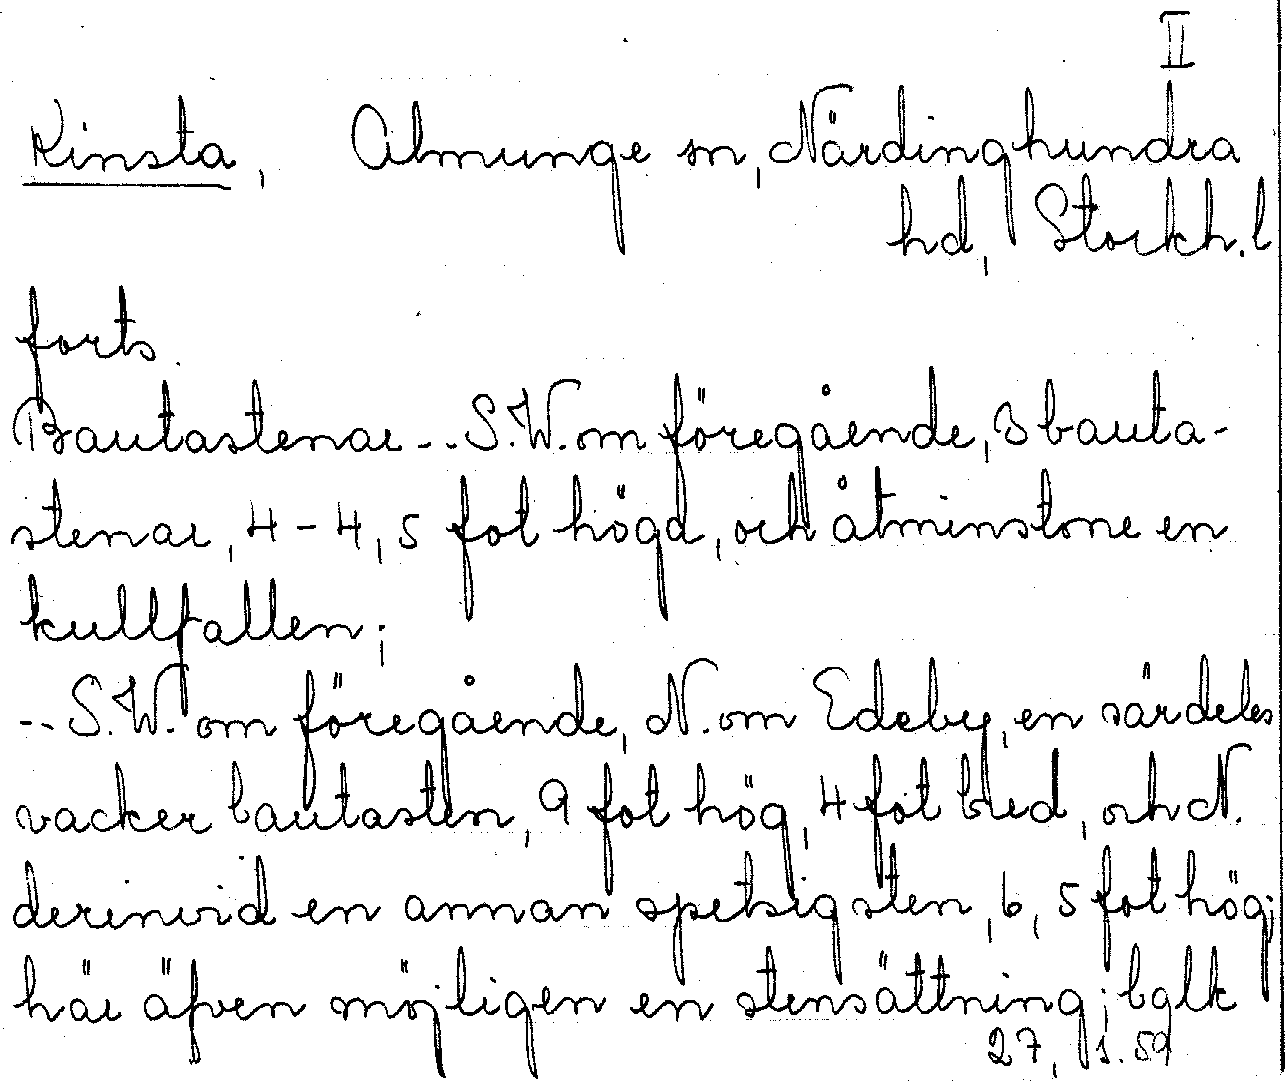 II
Kinsta, Almunge sn, Närdinghundra
hd, Stockh.l
forts.
Bautastenar -- S.W. om föregående, 3 bauta-
stenar, 4-4,5 fot högd, och åtminstone en
kullfallen;
-- S.W. om föregående, N. om Edeby, en särdeles
vacker bautasten, 9 fot hög, 4 fot bred, och N.
derinvid en annan spetsig sten, 6,5 fot hög;
här äfven möjligen en stensättning; bglk
27, 1.59